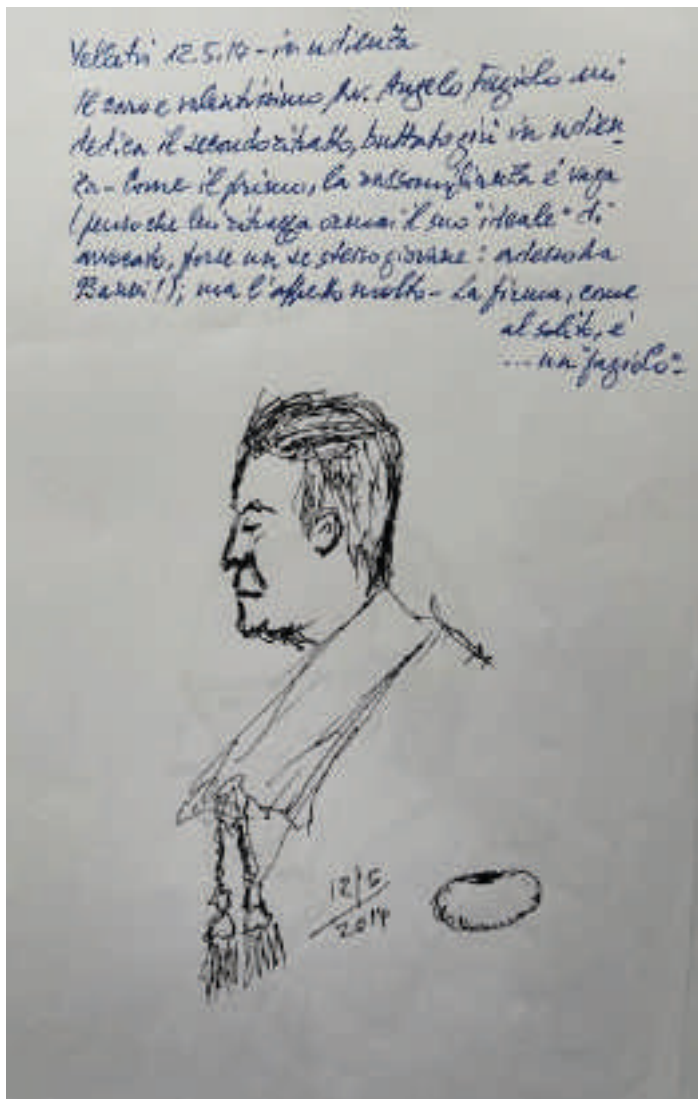 Velletri 12.5.14 - in udienza
Il caro e valentissimo Av. Angelo Fagiolo mi
dedica il secondo ritratto, buttato giù in udien-
za - Come il primo, la rassomiglianza è vaga
(penso che lui ritragga ormai il suo "ideale" di
avvocato, forse un se stesso giovane: adesso ha
); ma l'affetto molto - La firma, come
al solito, è
... un "fagiolo" -
12/5
2014